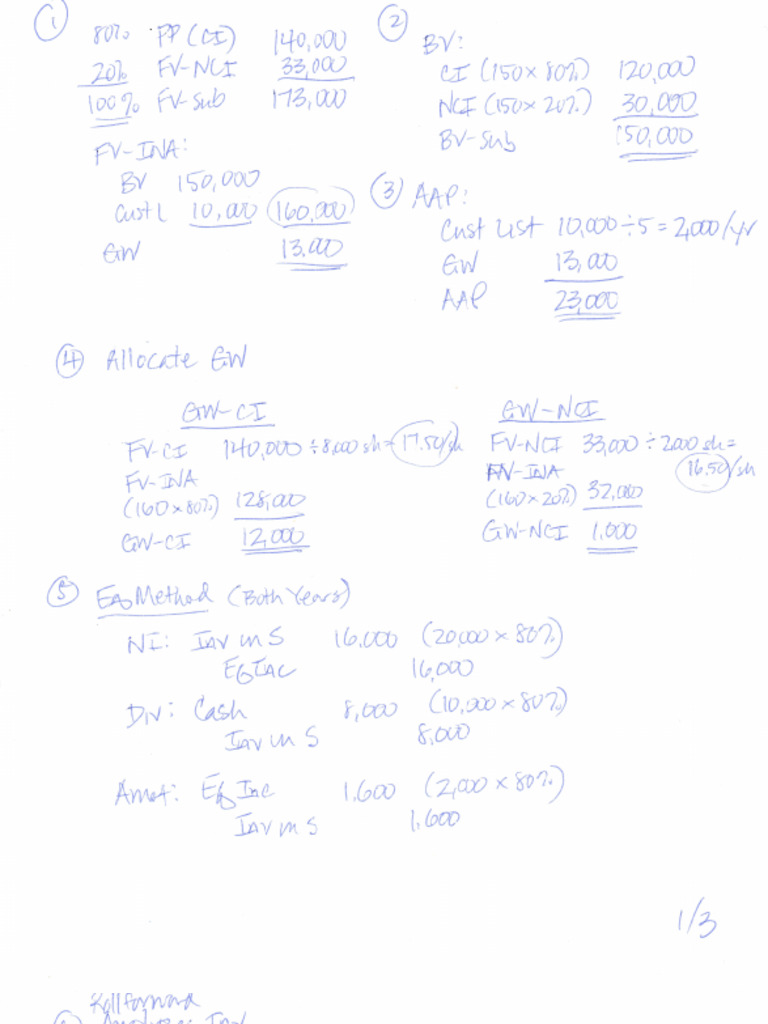 ①
80% PP (CI) 140,000
20% FV-NCI 33,000
100% FV-Sub 173,000
FV-INA:
BV 150,000
Cust L 10,000 160,000
GW 13,000
②
BV:
CI (150 x 80%) 120,000
NCI (150 x 20%) 30,000
BV-Sub 150,000
③ AAP:
Cust List 10,000 ÷ 5 = 2,000/yr
GW 13,000
AAP 23,000
④ Allocate GW
GW-CI
FV-CI 140,000 ÷ 8,000 sh = 17.50/sh
FV-INA
(160 x 80%) 128,000
GW-CI 12,000
GW-NCI
FV-NCI 33,000 ÷ 2000 sh =
16.50/sh
FV-INA
(160 x 20%) 32,000
GW-NCI 1,000
⑤ Eq Method (Both Years)
NI: Inv in S 16,000 (20,000 x 80%)
Eq Inc 16,000
Div: Cash 8,000 (10,000 x 80%)
Inv in S 8,000
Amort: Eq Inc 1,600 (2,000 x 80%)
Inv in S 1,600
1/3
Rollforward